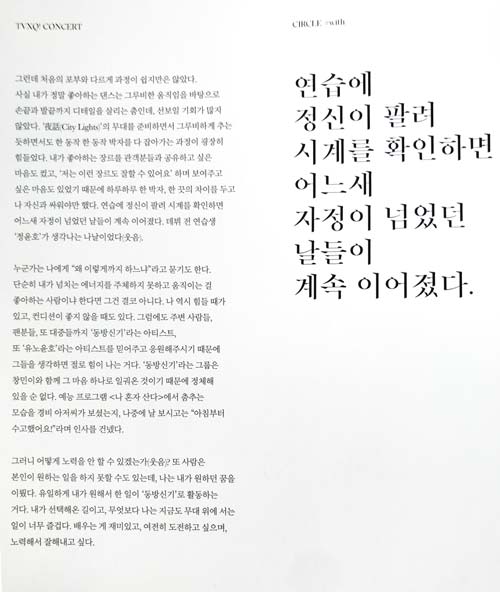 TVXQ! CONCERT
CIRCLE #with
그런데 처음의 포부와 다르게 과정이 쉽지만은 않았다.
사실 내가 정말 좋아하는 댄스는 그루비한 움직임을 바탕으로
손끝과 발끝까지 디테일을 살리는 춤인데, 선보일 기회가 많지
않았다. '夜話(City Lights)'의 무대를 준비하면서 그루비하게 추는
듯하면서도 한 동작 한 동작 박자를 다 잡아가는 과정이 굉장히
힘들었다. 내가 좋아하는 장르를 관객분들과 공유하고 싶은
마음도 컸고, '저는 이런 장르도 잘할 수 있어요' 하며 보여주고
싶은 마음도 있었기 때문에 하루하루 한 박자, 한 끗의 차이를 두고
나 자신과 싸워야만 했다. 연습에 정신이 팔려 시계를 확인하면
어느새 자정이 넘었던 날들이 계속 이어졌다. 데뷔 전 연습생
'정윤호'가 생각나는 나날이었다(웃음).
누군가는 나에게 "왜 이렇게까지 하느냐"라고 묻기도 한다.
단순히 내가 넘치는 에너지를 주체하지 못하고 움직이는 걸
좋아하는 사람이냐 한다면 그건 결코 아니다. 나 역시 힘들 때가
있고, 컨디션이 좋지 않을 때도 있다. 그럼에도 주변 사람들,
팬분들, 또 대중들까지 '동방신기'라는 아티스트,
또 '유노윤호'라는 아티스트를 믿어주고 응원해주시기 때문에
그들을 생각하면 절로 힘이 나는 거다. '동방신기'라는 그룹은
창민이와 함께 그 마음 하나로 일궈온 것이기 때문에 정체해
있을 순 없다. 예능 프로그램 <나 혼자 산다>에서 춤추는
모습을 경비 아저씨가 보셨는지, 나중에 날 보시고는 "아침부터
수고했어요!"라며 인사를 건넸다.
그러니 어떻게 노력을 안 할 수 있겠는가(웃음)? 또 사람은
본인이 원하는 일을 하지 못할 수도 있는데, 나는 내가 원하던 꿈을
이뤘다. 유일하게 내가 원해서 한 일이 '동방신기'로 활동하는
거다. 내가 선택해온 길이고, 무엇보다 나는 지금도 무대 위에 서는
일이 너무 즐겁다. 배우는 게 재미있고, 여전히 도전하고 싶으며,
노력해서 잘해내고 싶다.
연습에
정신이 팔려
시계를 확인하면
어느새
자정이 넘었던
날들이
계속 이어졌다.